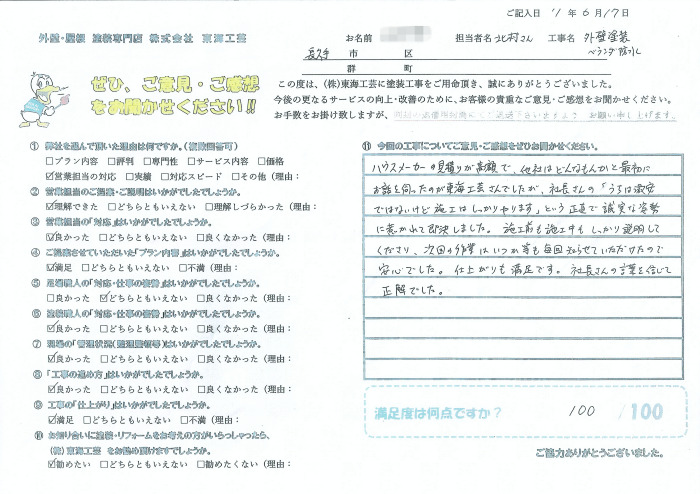 ご記入日 '1 年 6 月 17 日
外壁・屋根 塗装専門店 株式会社 東海工芸
お名前 担当者名 北村さん 工事名 外壁塗装
ベランダ防水
長久手 市 区
郡 町
ぜひ、ご意見・ご感想
をお聞かせください!!
この度は、(株)東海工芸に塗装工事をご用命頂き、誠にありがとうございました。
今後の更なるサービスの向上・改善のために、お客様の貴重なご意見・ご感想をお聞かせください。
お手数をお掛け致しますが、 お願い申し上げます。
① 弊社を選んで頂いた理由は何ですか。(複数回答可)
□プラン内容 □評判 □専門性 □サービス内容 □価格
☑営業担当の対応 □実績 □対応スピード □その他(理由:
② 営業担当のご提案・ご説明はいかがでしたでしょうか。
☑理解できた □どちらともいえない □理解しづらかった(理由:
③ 営業担当の「対応」はいかがでしたでしょうか。
☑良かった □どちらともいえない □良くなかった(理由:
④ ご提案させていただいた「プラン内容」はいかがでしたでしょうか。
☑満足 □どちらともいえない □不満(理由:
⑤ 足場職人の「対応・仕事の姿勢」はいかがでしたでしょうか。
□良かった ☑どちらともいえない □良くなかった(理由:
⑥ 塗装職人の「対応・仕事の姿勢」はいかがでしたでしょうか。
☑良かった □どちらともいえない □良くなかった(理由:
⑦ 現場の「管理状況(整理整頓等)はいかがでしたでしょうか。
☑良かった □どちらともいえない □良くなかった(理由:
⑧ 「工事の進め方」はいかがでしたでしょうか。
☑良かった □どちらともいえない □良くなかった(理由:
⑨ 工事の「仕上がり」はいかがでしたでしょうか。
☑満足 □どちらともいえない □不満(理由:
⑩ お知り合いに塗装・リフォームをお考えの方がいらっしゃったら、
(株)東海工芸 をお勧め頂けますでしょうか。
☑勧めたい □どちらともいえない □勧めたくない(理由:
⑪ 今回の工事についてご意見・ご感想をぜひお聞かせください。
ハウスメーカーの見積りが高額で、他社はどんなもんかと最初に
お話を伺ったのが東海工芸さんでしたが、社長さんの「うちは激安
ではないけど施工はしっかりやります」という正直で誠実な姿勢
に惹かれて即決しました。施工前も施工中もしっかり説明して
くださり、次回の作業はいつか等も毎回知らせていただけたので
安心でした。仕上がりも満足です。社長さんの言葉を信じて
正解でした。
満足度は何点ですか? 100 /100
ご協力ありがとうございました。